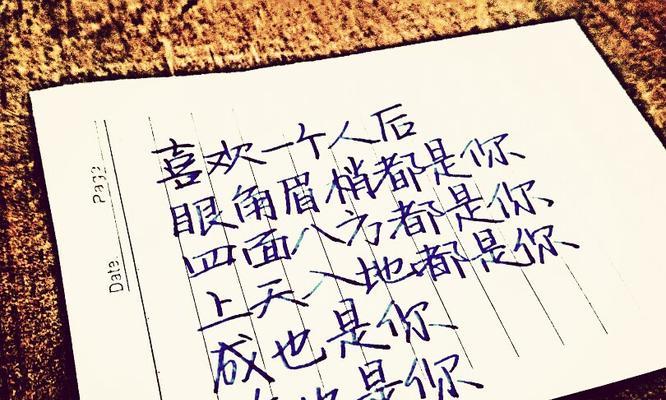 Page
Date
喜欢一个人后
眼角眉梢都是你
四面八方都是你
上天入地都是你
成也是你
也是你